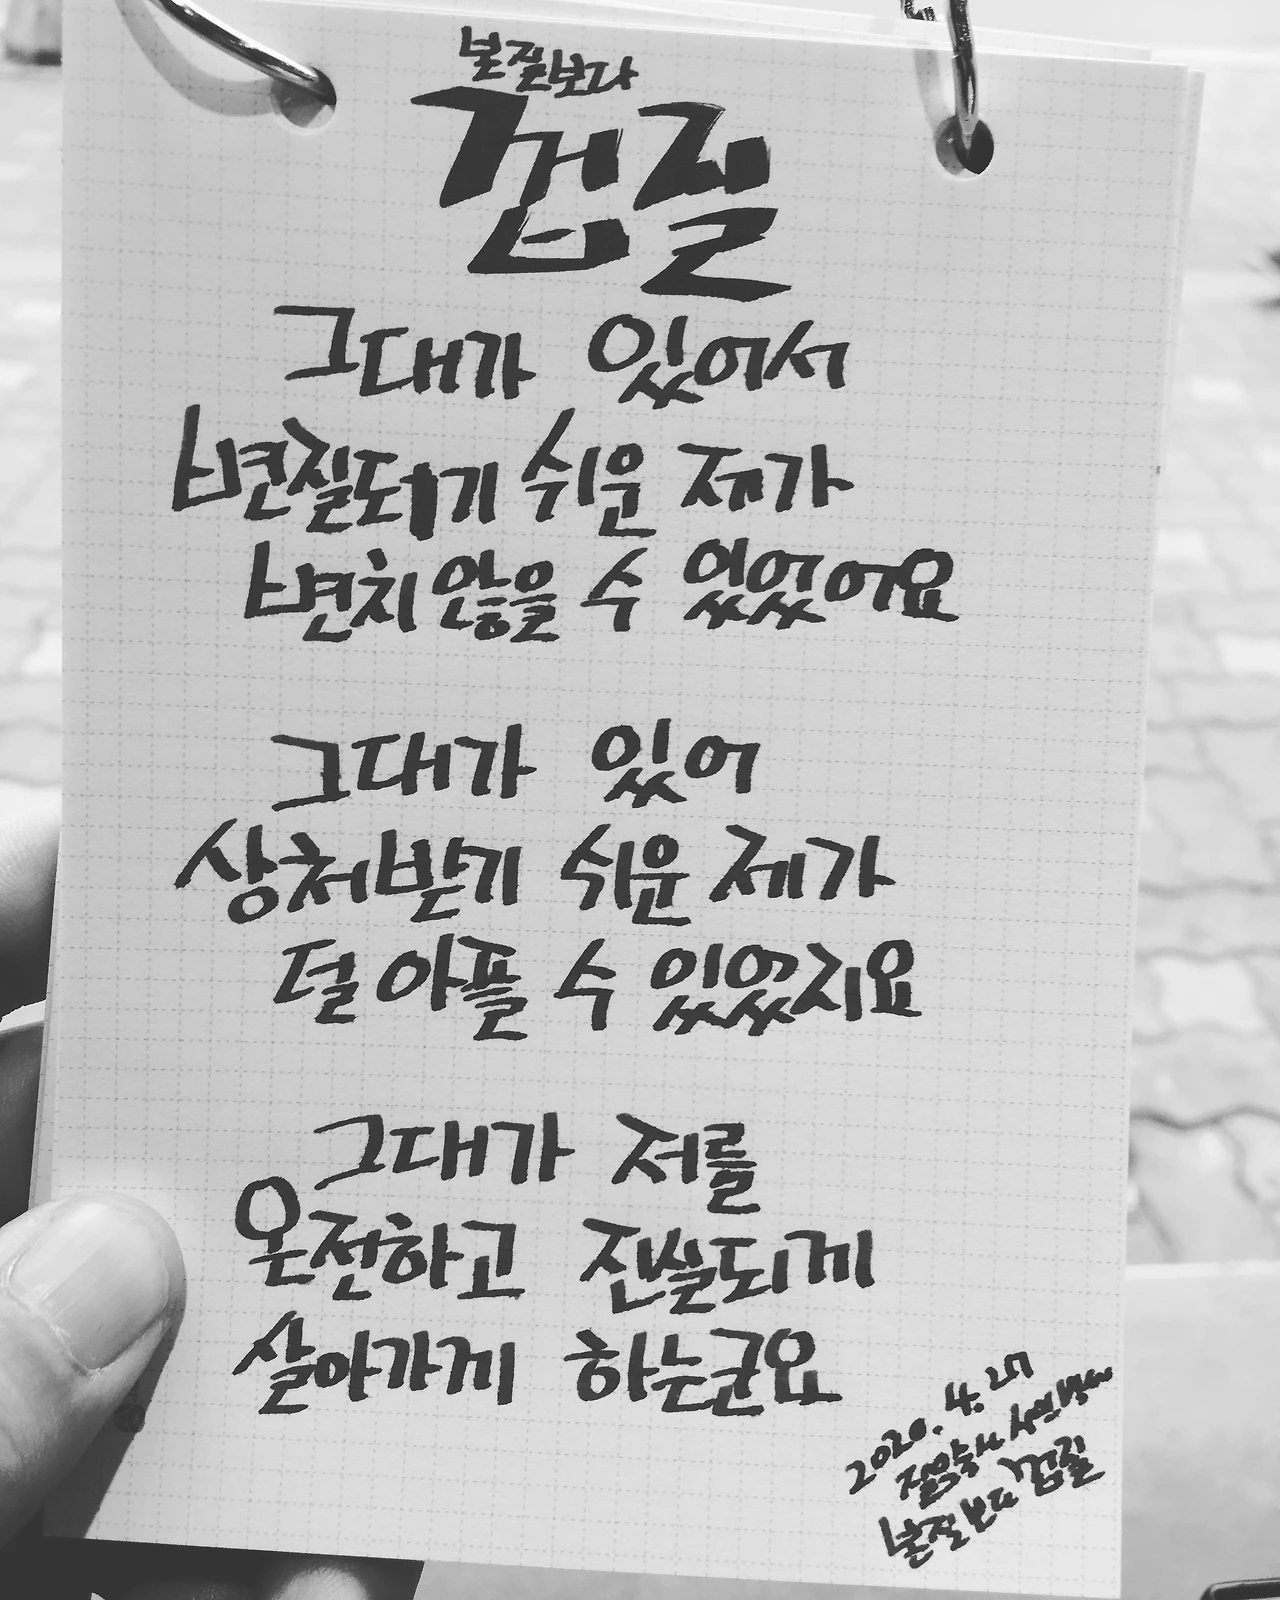 본질보다
껍질
그대가 있어서
변질되기 쉬운 제가
변치 않을 수 있었어요
그대가 있어
상처받기 쉬운 제가
덜 아플 수 있었지요
그대가 저를
온전하고 진실되게
살아가게 하는군요
2020. 4. 27
본질보다 껍질